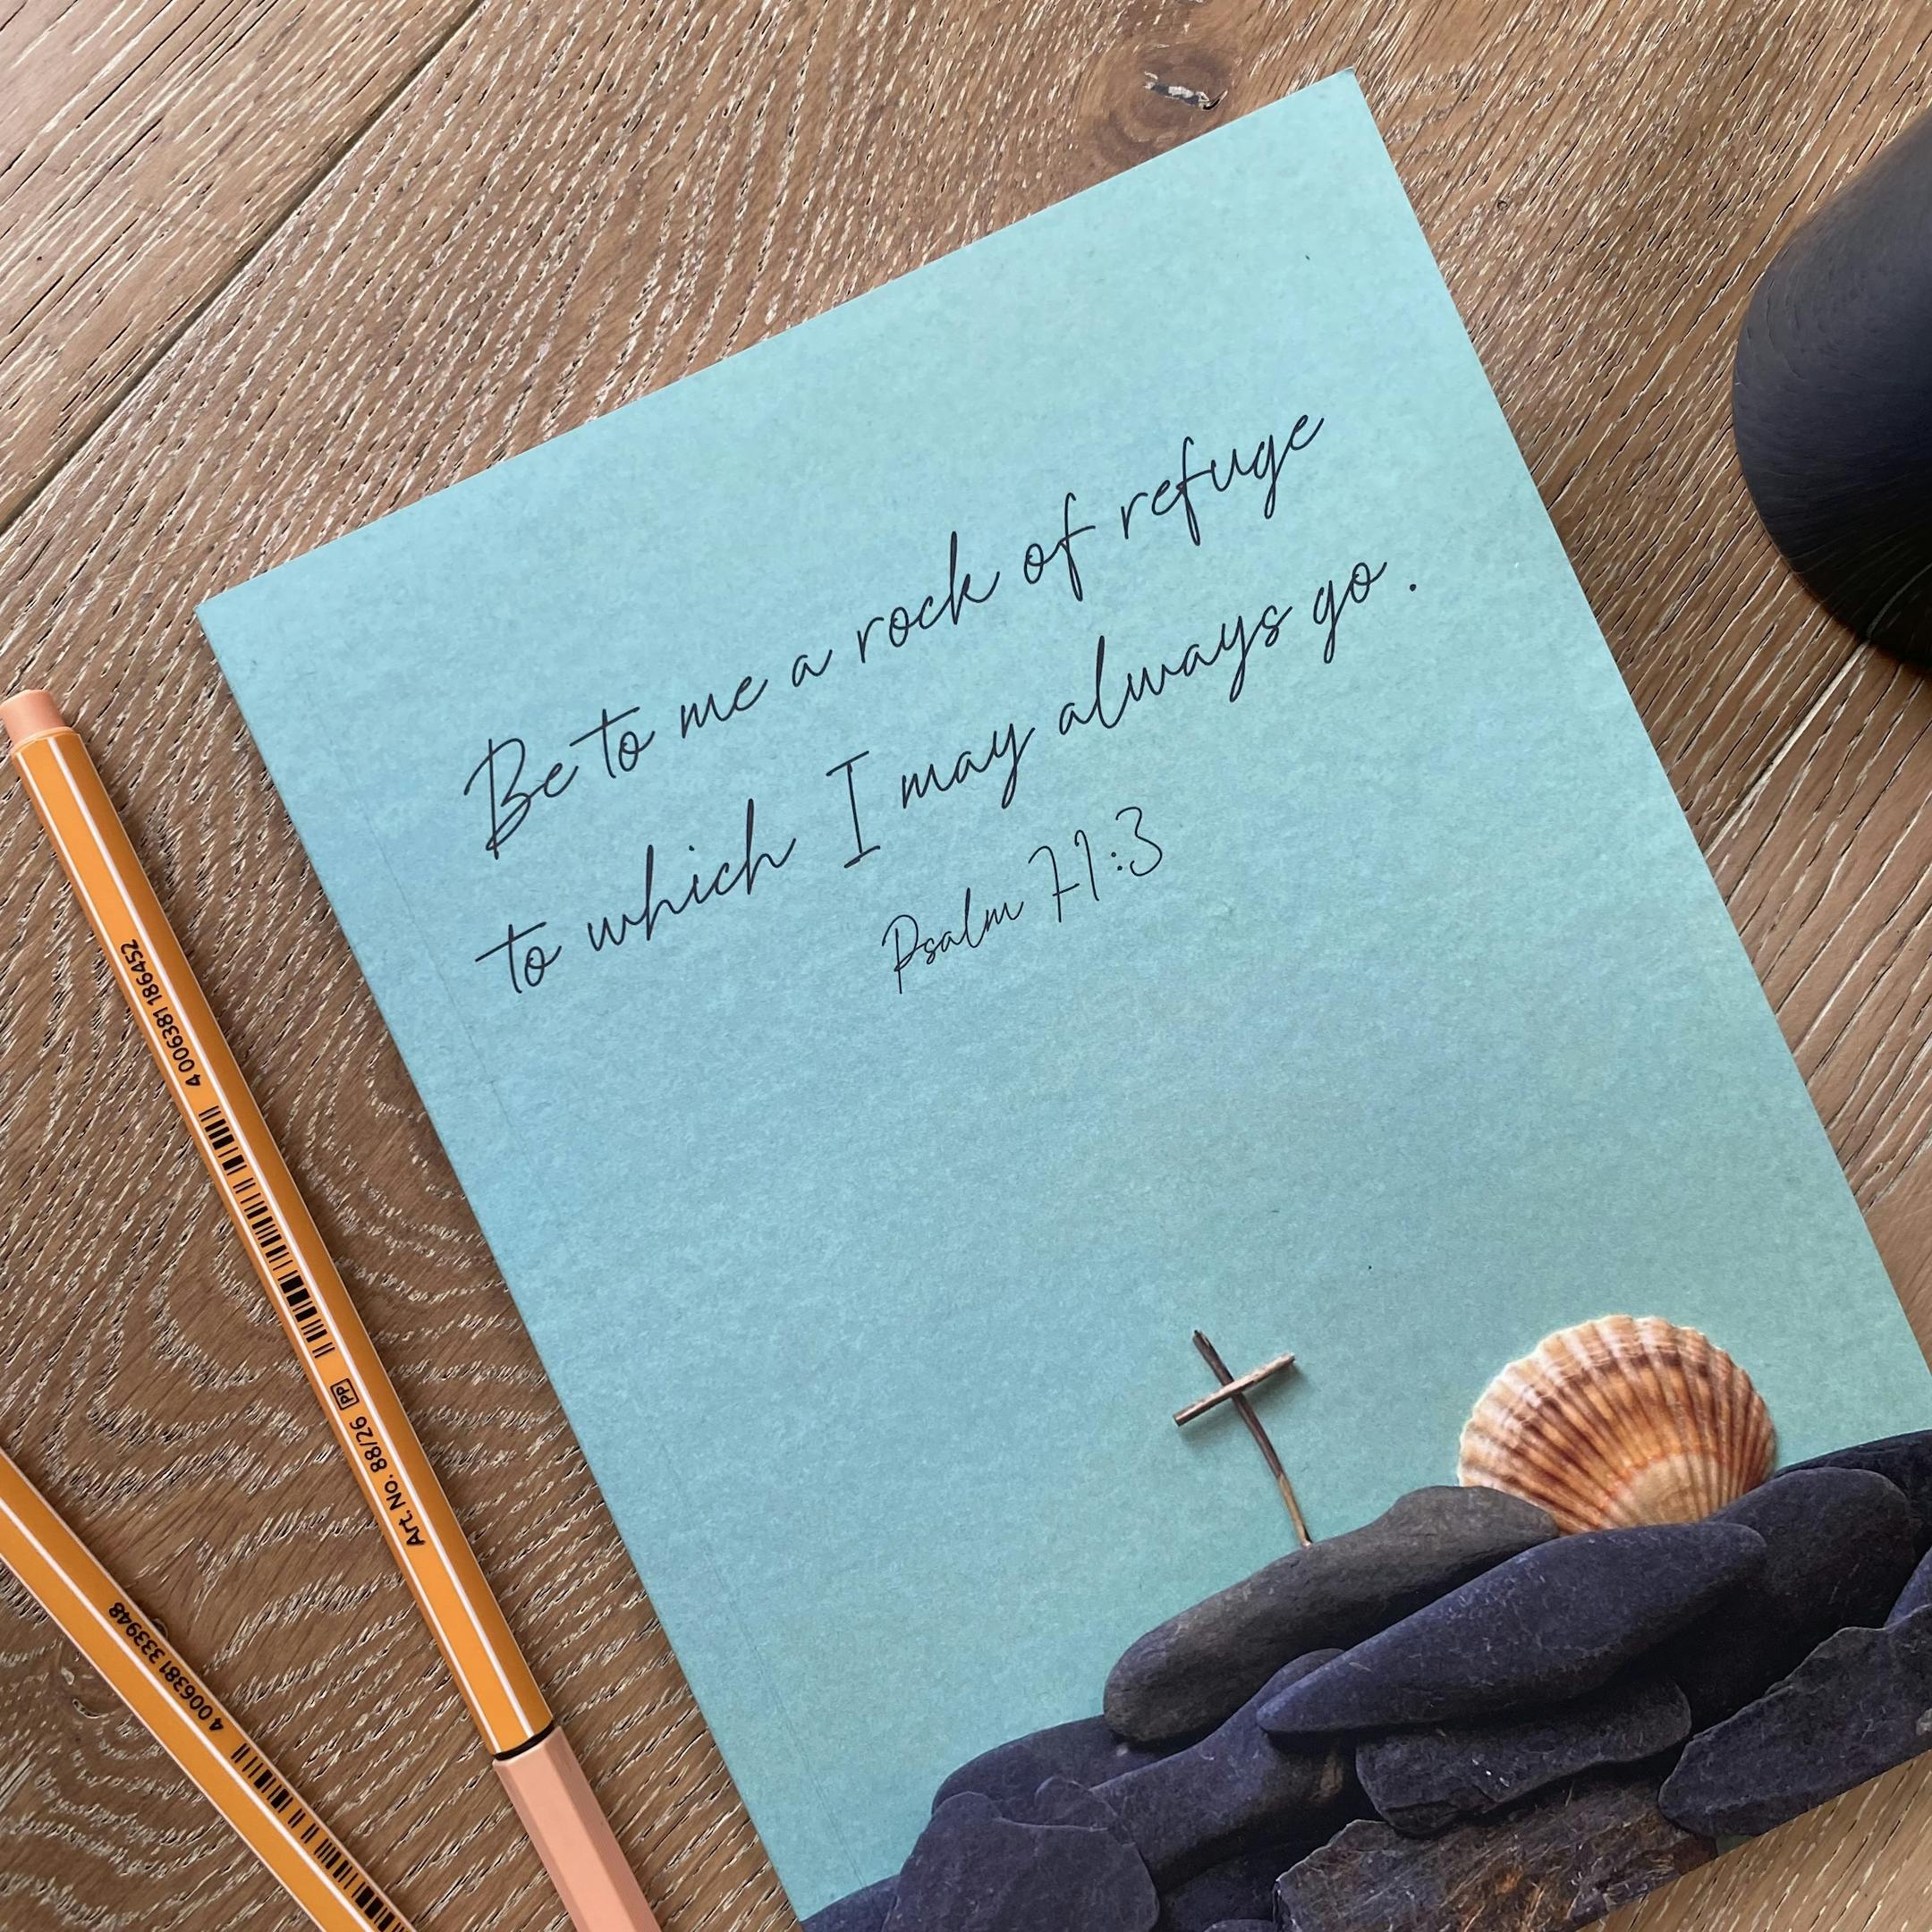 Be to me a rock of refuge
to which I may always go.
Psalm 71:3
4 006381 186452
Art. No. 88/26 PP
4 006381 333948